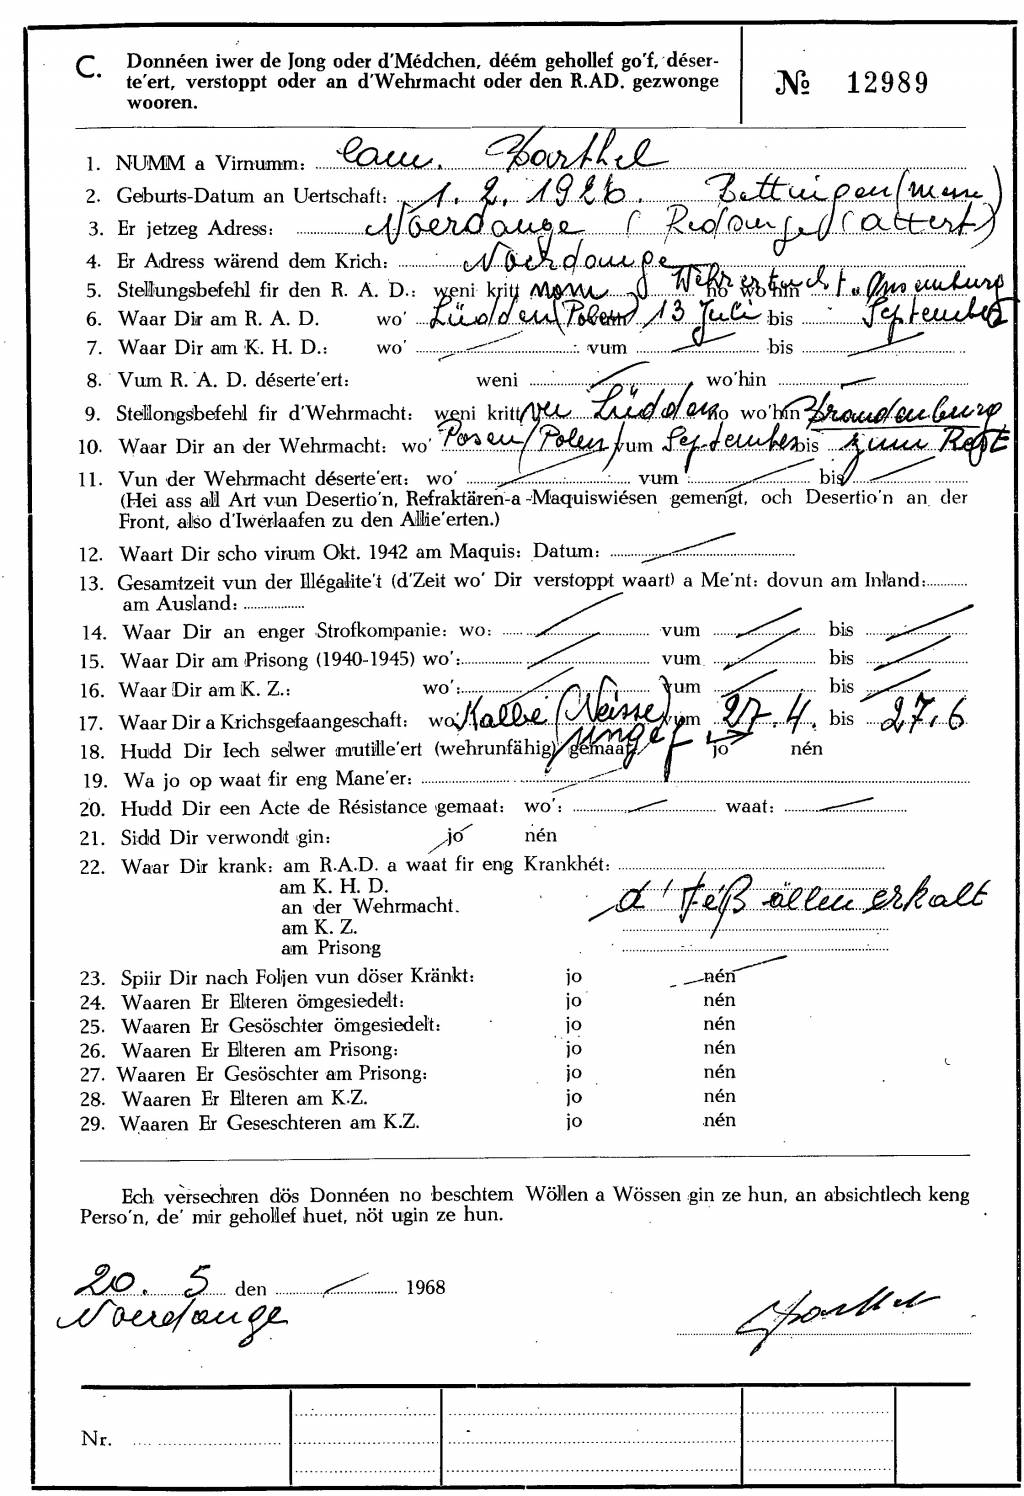 C. Donnéen iwer de Jong oder d'Médchen, déém gehollef go'f, déser-
te'ert, verstoppt oder an d'Wehrmacht oder den R.AD. gezwonge
wooren.
№ 12989
1. NUMM a Virnumm: Cam. Barthel
2. Geburts-Datum an Uertschaft: 1. 2. 1926. Bettingen (Mess)
3. Er jetzeg Adress: Noerdange (Redange/Attert)
4. Er Adress wärend dem Krich: Noerdange
5. Stellungsbefehl fir den R. A. D.: weni kritt vom Wehrertücht. Ansemburg no wo'hin
6. Waar Dir am R. A. D. wo' Lüdden (Polen) 13 Juli bis September
7. Waar Dir am K. H. D.: wo' vum bis
8. Vum R. A. D. déserte'ert: weni wo'hin
9. Stellongsbefehl fir d'Wehrmacht: weni kritt vu Lüdden no wo'hin Brandenburg
10. Waar Dir an der Wehrmacht: wo' Posen (Polen) vum September bis zum Rest
11. Vun der Wehrmacht déserte'ert: wo' vum bis
(Hei ass all Art vun Desertio'n, Refraktären-a-Maquiswiésen gemengt, och Desertio'n an der
Front, also d'Iwerlaafen zu den Allie'erten.)
12. Waart Dir scho virum Okt. 1942 am Maquis: Datum:
13. Gesamtzeit vun der Illégalite't (d'Zeit wo' Dir verstoppt waart) a Me'nt: dovun am Inland:
am Ausland:
14. Waar Dir an enger Strofkompanie: wo: vum bis
15. Waar Dir am Prisong (1940-1945) wo': vum bis
16. Waar Dir am K. Z.: wo': vum bis
17. Waar Dir a Krichsgefaangeschaft: wo (Neisse) vum 27. 4. bis 27. 6
18. Hudd Dir Iech selwer mutille'ert (wehrunfähig) gemaat jo nén
19. Wa jo op waat fir eng Mane'er:
20. Hudd Dir een Acte de Résistance gemaat: wo': waat:
21. Sidd Dir verwondt gin: jo nén
22. Waar Dir krank: am R.A.D. a waat fir eng Krankhét:
am K. H. D.
an der Wehrmacht. d'Féiß allen erkalt
am K. Z.
am Prisong
23. Spiir Dir nach Foljen vun döser Kränkt: jo nén
24. Waaren Er Elteren ömgesiedelt: jo nén
25. Waaren Er Gesöschter ömgesiedelt: jo nén
26. Waaren Er Elteren am Prisong: jo nén
27. Waaren Er Gesöschter am Prisong: jo nén
28. Waaren Er Elteren am K.Z. jo nén
29. Waaren Er Geseschteren am K.Z. jo nén
Ech versechren dös Donnéen no beschtem Wöllen a Wössen gin ze hun, an absichtlech keng
Perso'n, de' mir gehollef huet, nöt ugin ze hun.
20. 5 den 1968
Noerdange
Barthel
Nr.